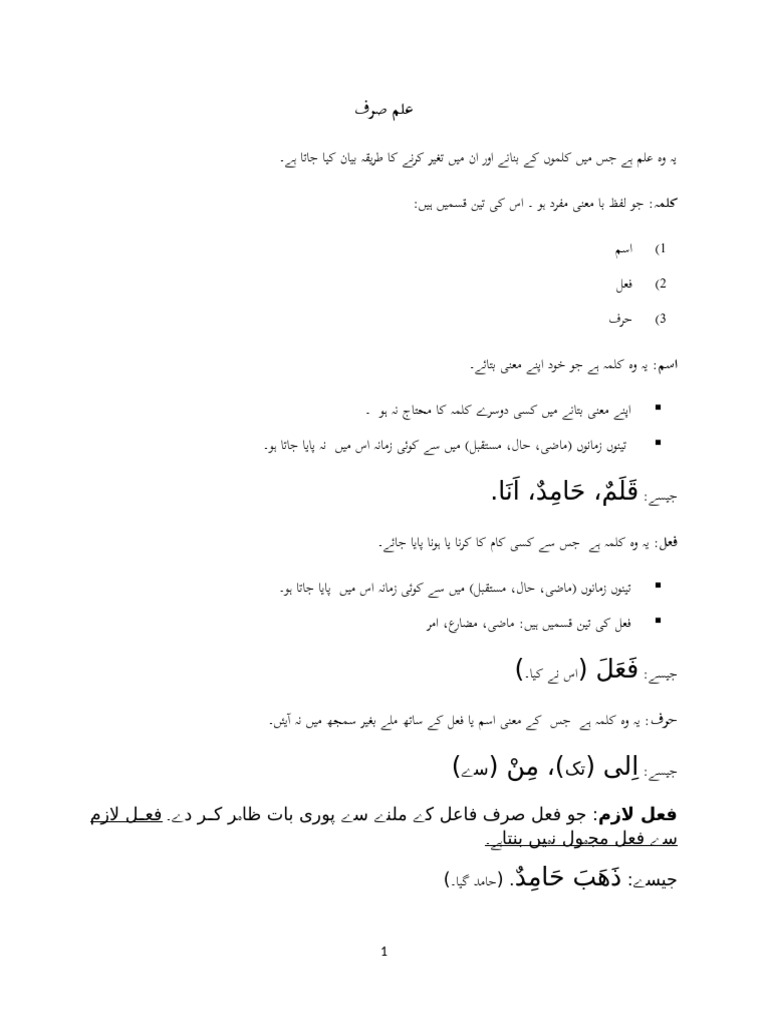 علم صرف
یہ وہ علم ہے جس میں کلموں کے بنانے اور ان میں تغیر کرنے کا طریقہ بیان کیا جاتا ہے۔
کلمہ: جو لفظ با معنی مفرد ہو ۔ اس کی تین قسمیں ہیں:
1) اسم
2) فعل
3) حرف
اسم: یہ وہ کلمہ ہے جو خود اپنے معنی بتائے۔
▪ اپنے معنی بتانے میں کسی دوسرے کلمہ کا محتاج نہ ہو ۔
▪ تینوں زمانوں (ماضی، حال، مستقبل) میں سے کوئی زمانہ اس میں نہ پایا جاتا ہو۔
جیسے: قَلَمٌ، حَامِدٌ، اَنَا.
فعل: یہ وہ کلمہ ہے جس سے کسی کام کا کرنا یا ہونا پایا جائے۔
▪ تینوں زمانوں (ماضی، حال، مستقبل) میں سے کوئی زمانہ اس میں پایا جاتا ہو۔
▪ فعل کی تین قسمیں ہیں: ماضی، مضارع، امر
جیسے: فَعَلَ (اس نے کیا۔)
حرف: یہ وہ کلمہ ہے جس کے معنی اسم یا فعل کے ساتھ ملے بغیر سمجھ میں نہ آیئں۔
جیسے: اِلی (تک)، مِنْ (سے)
فعل لازم: جو فعل صرف فاعل کے ملنے سے پوری بات ظاہر کر دے۔ فعل لازم
سے فعل مجہول نہیں بنتاہے۔
جیسے: ذَهَبَ حَامِدٌ. (حامد گیا۔)
1